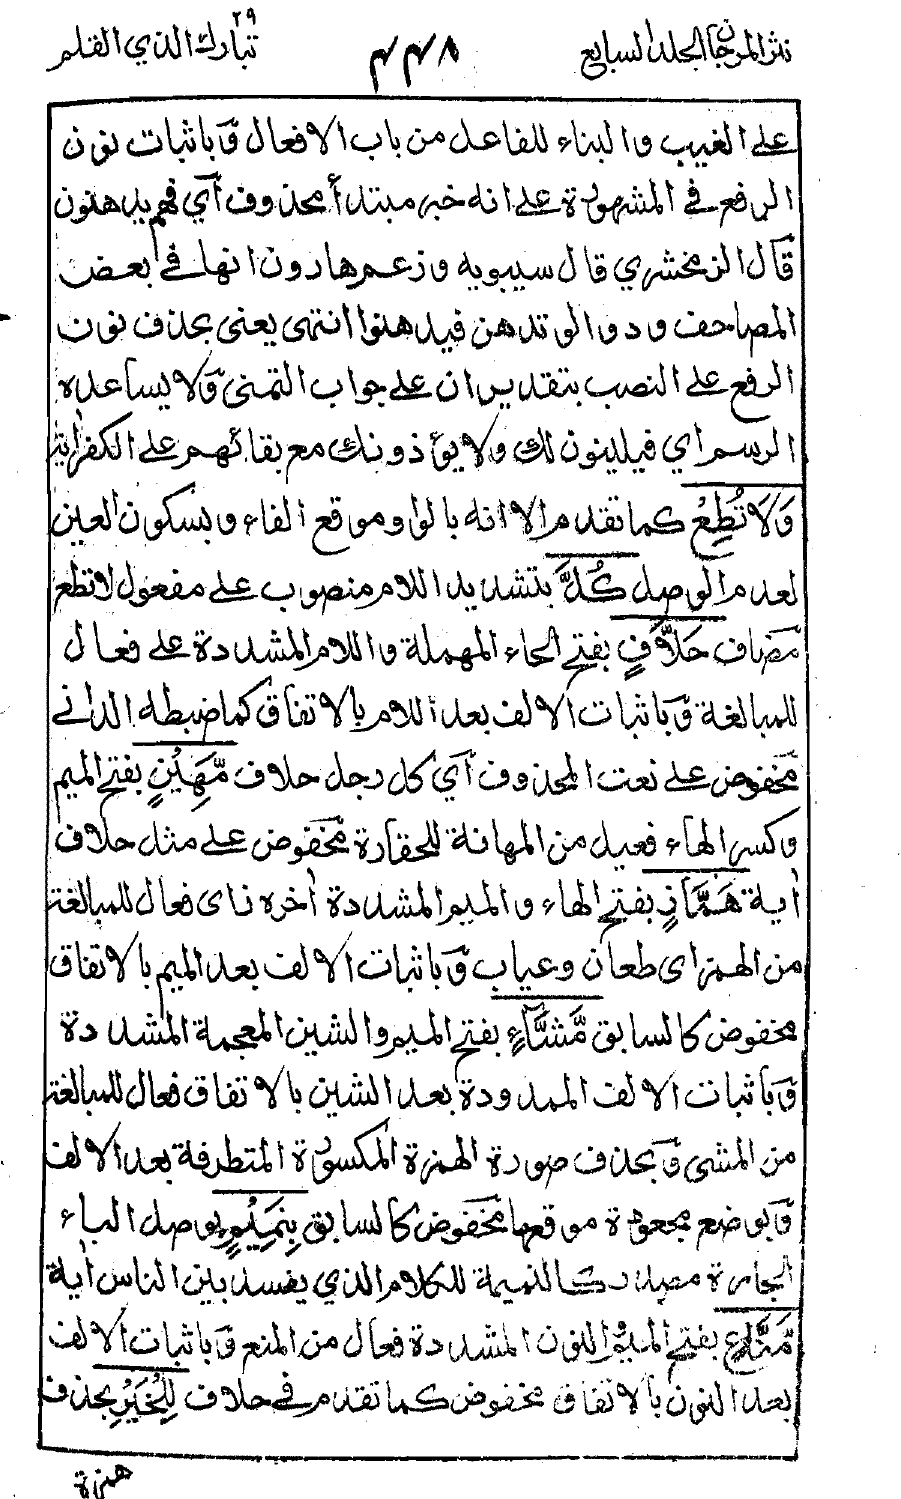 نثر المرجان الجلد السابع ٤٤٨ تبارك الذي ٢٩ القلم
على الغيب والبناء للفاعل من باب الافعال وبا ثبات نون
الرفع في المشهورة على انه خبر مبتدأ محذوف أي فهم يدهنون
قال الزمخشري قال سيبويه وزعم هارون انها في بعض
المصاحف ودوا لو تدهن فيدهنوا انتهى يعني بحذف نون
الرفع على النصب بتقدير ان على جواب التمنى ولا يساعده
الرسم اي فيلينون لك ولا يؤذونك مع بقائهم على الكفر اية
وَلَا تُطِعْ كما تقدم الا انه بالواو موقع الفاء وبسكون العين
لعدم الوصل كُلَّ بتشديد اللام منصوب على مفعول لا تطع
مضاف حَلَّافٍ بفتح الحاء المهملة واللام المشددة على فعال
للمبالغة وبا ثبات الالف بعد اللام بالاتفاق كما ضبطه الداني
مخفوض على نعت المحذوف أي كل رجل حلاف مَّهِيْنٍ بفتح الميم
وكسر الهاء فعيل من المهانة للحقارة مخفوض على مثل حلاف
أية هَمَّازٍ بفتح الهاء والميم المشددة أخره زاى فعال للمبالغة
من الهمز اى طعان وعياب وبا ثبات الالف بعد الميم بالاتفاق
مخفوض كالسابق مَّشَّآءٍ بفتح الميم والشين المعجمة المشددة
وبا ثبات الالف الممدودة بعد الشين بالاتفاق فعال للمبالغة
من المشى وبحذف صورة الهمزة المكسورة المتطرفة بعد الالف
وبوضع مجعودة موقعها مخفوض كالسابق بِنَمِيْمٍ بوصل الباء
الجارة مصدر كالنميمة للكلام الذي يفسد بين الناس أية
مَّنَّاعٍ بفتح الميم والنون المشددة فعال من المنع وبا ثبات الالف
بعد النون بالاتفاق مخفوض كما تقدم في حلاف لِّلْخَيْرِ بحذف
همزة